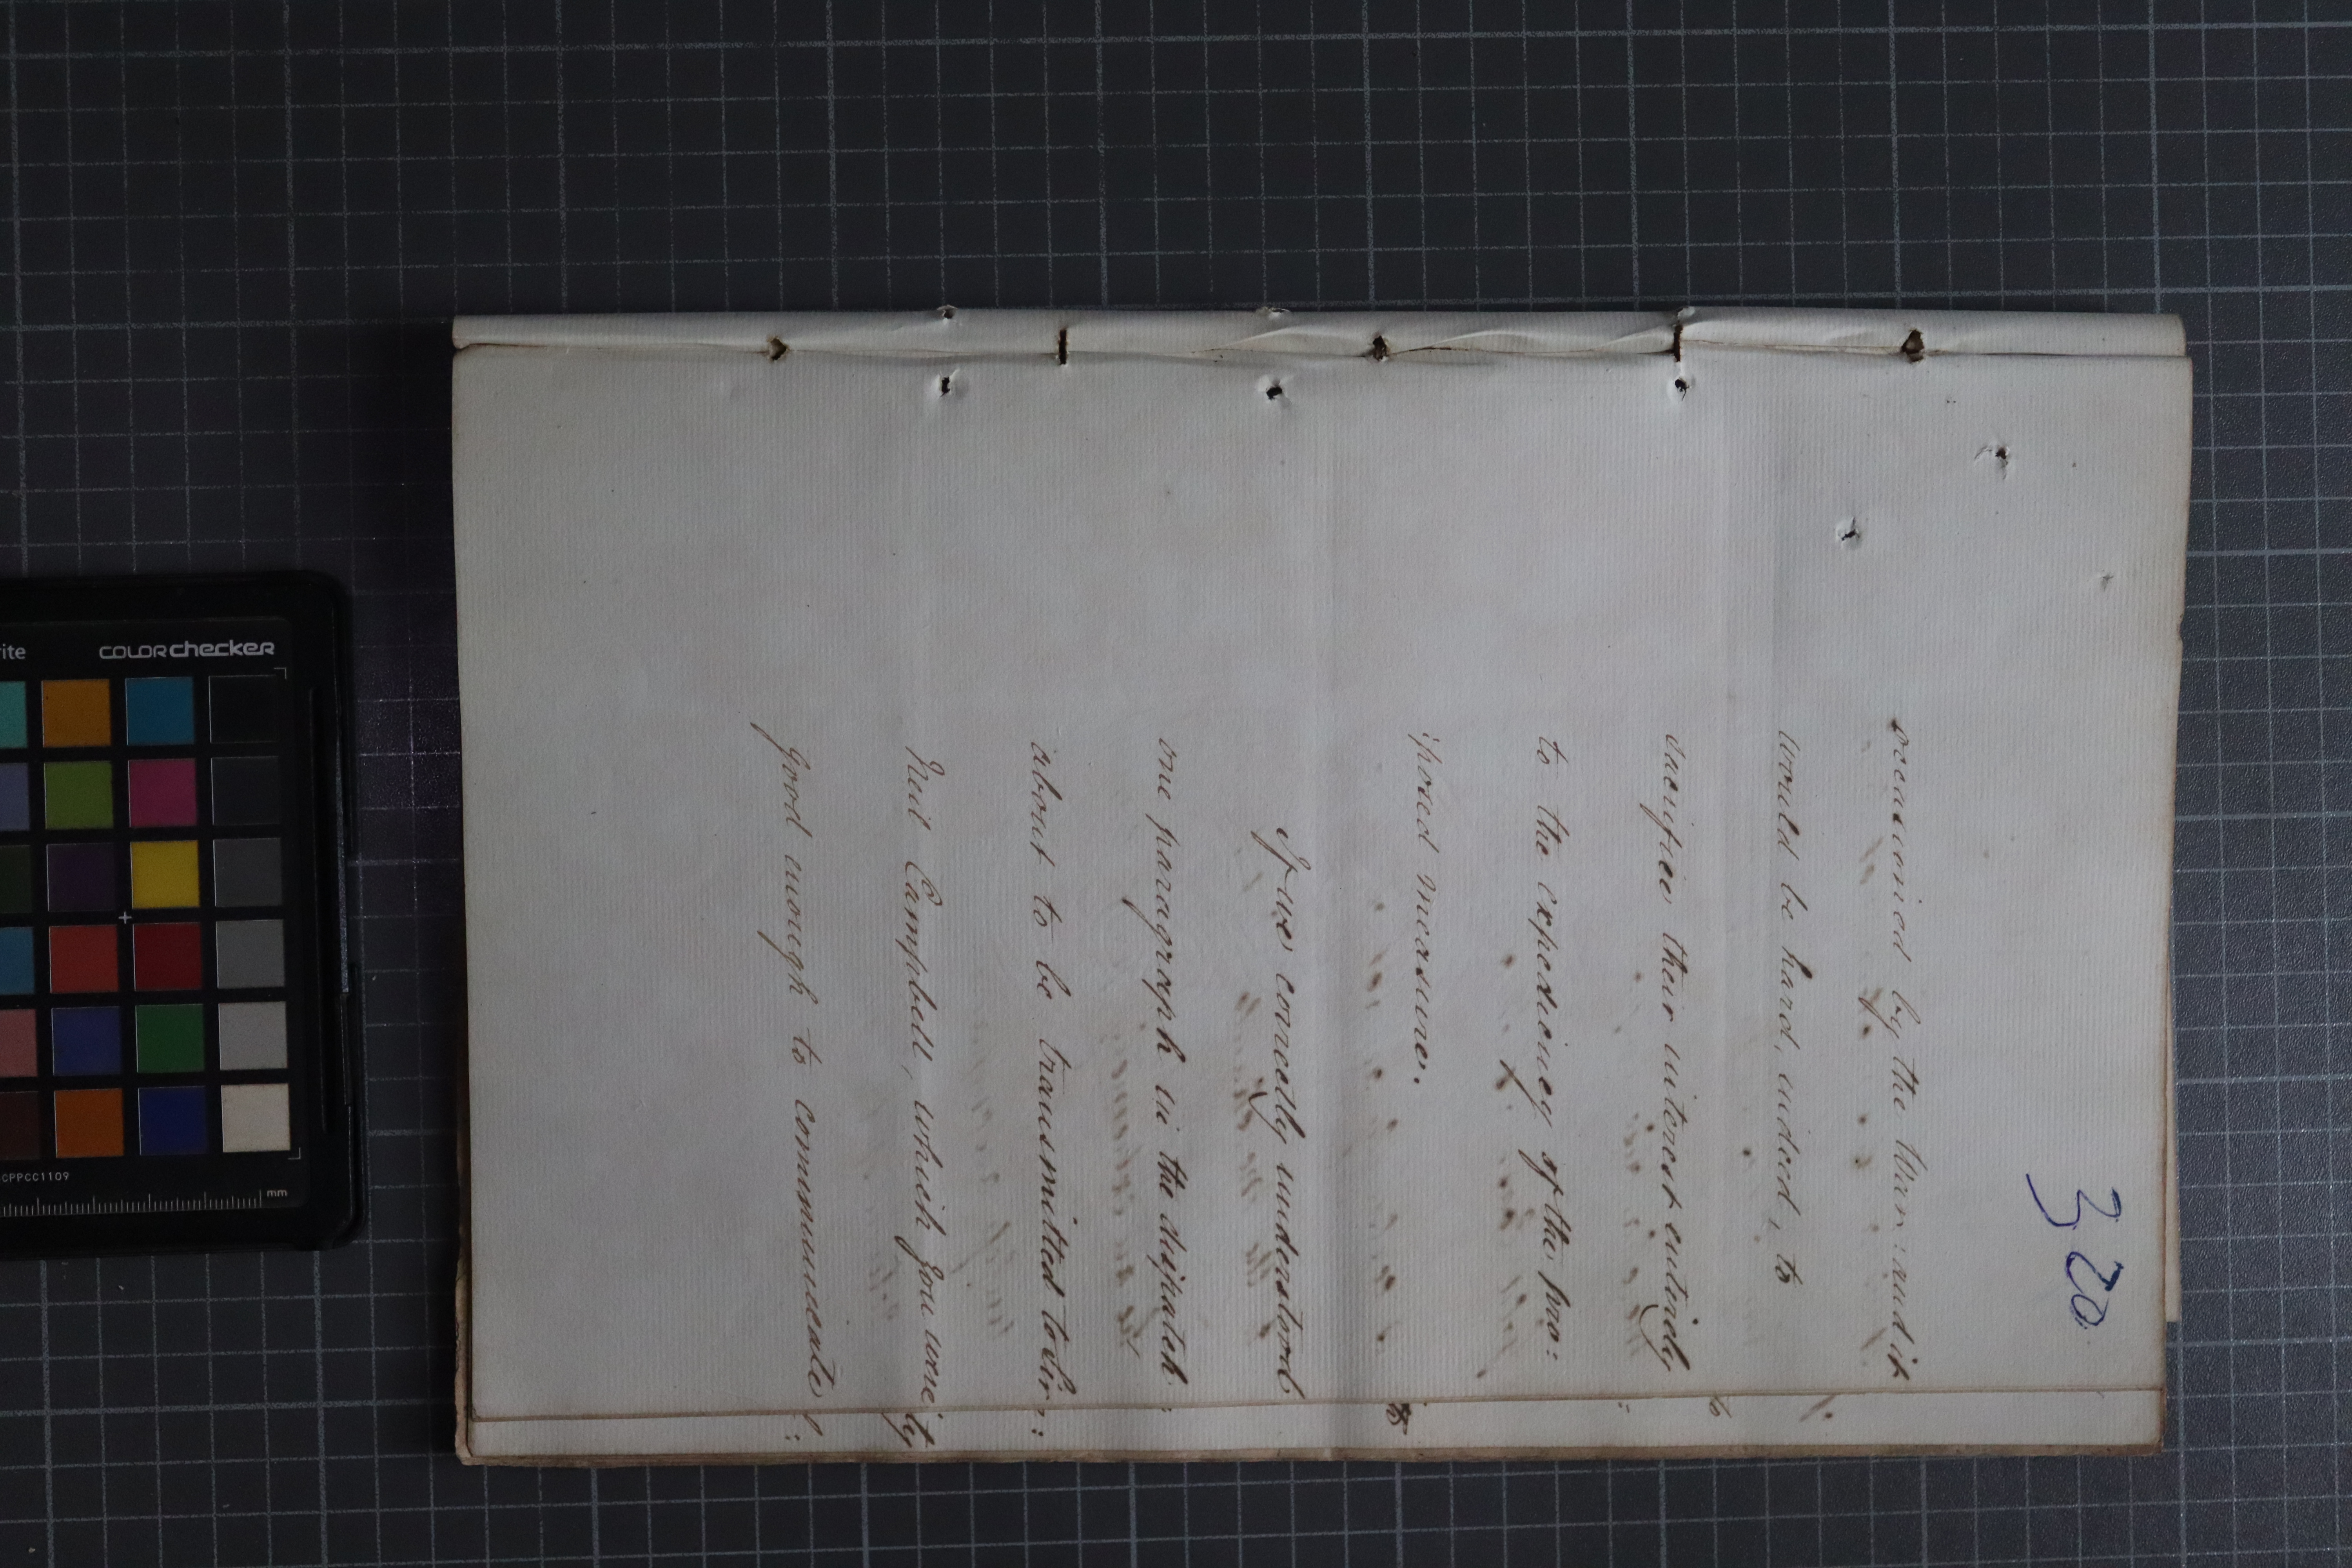 320
occasioned by the War: and it
would be hard, indeed, to
sacrifice their interest entirely
to the expediency of the pro:
:posed measure.
If we correctly understood
one paragraph in the dispatch
about to be transmitted to Sir
Neil Campbell, which you were
good enough to communicate
rite
COLORchecker
CPPCC1109
mm